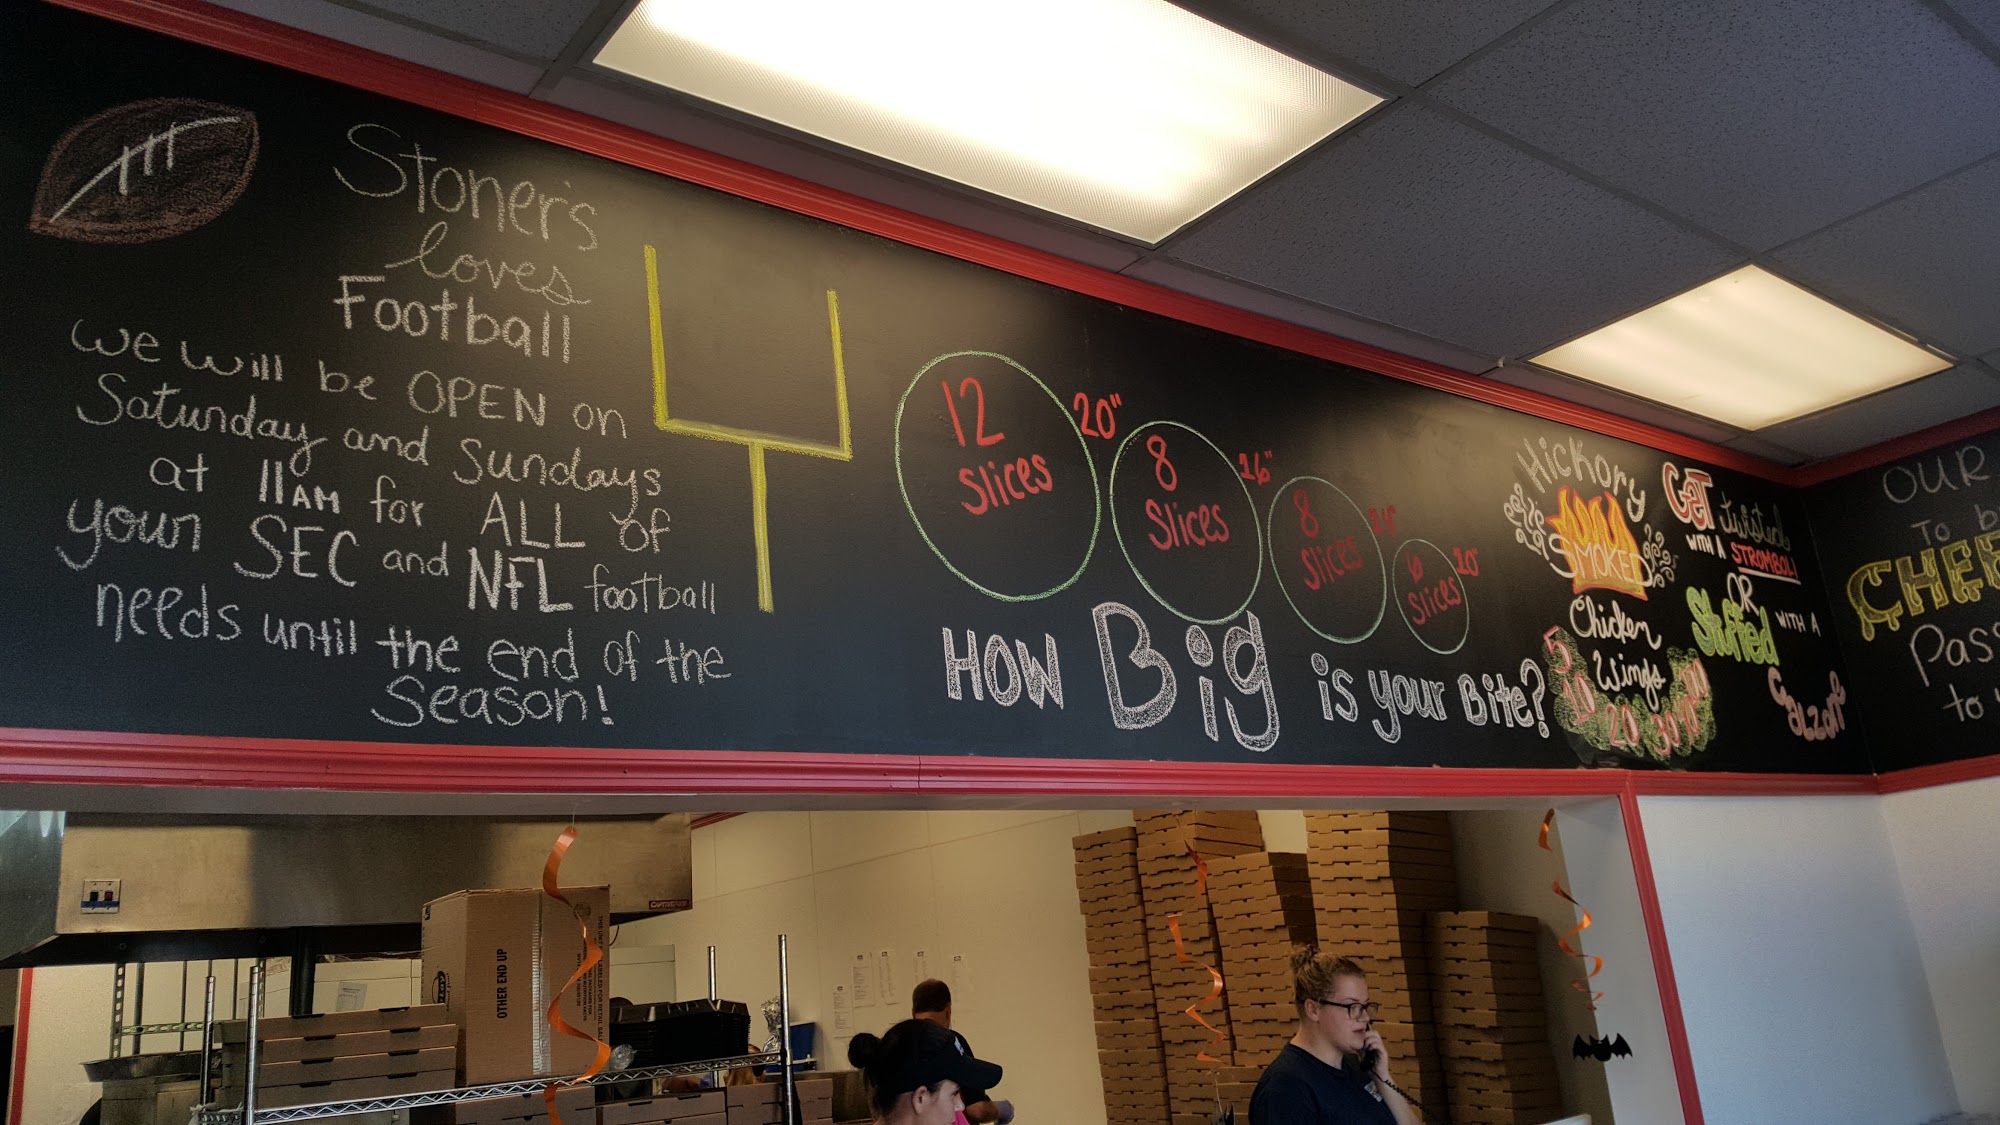 Stoner's
loves
Football
we will be OPEN on
Saturday and Sundays
at 11AM for ALL of
your SEC and NFL football
needs until the end of the
Season!
12
Slices
20"
8
Slices
16"
8
Slices
14"
6
Slices
10"
HOW Big is your Bite?
Hickory
SMOKED
Chicken
Wings
5
10
20
30
GET twisted
WITH A STROMBOLI
OR
Stuffed WITH A
Calzone
OUR
TO
to
OTHER END UP